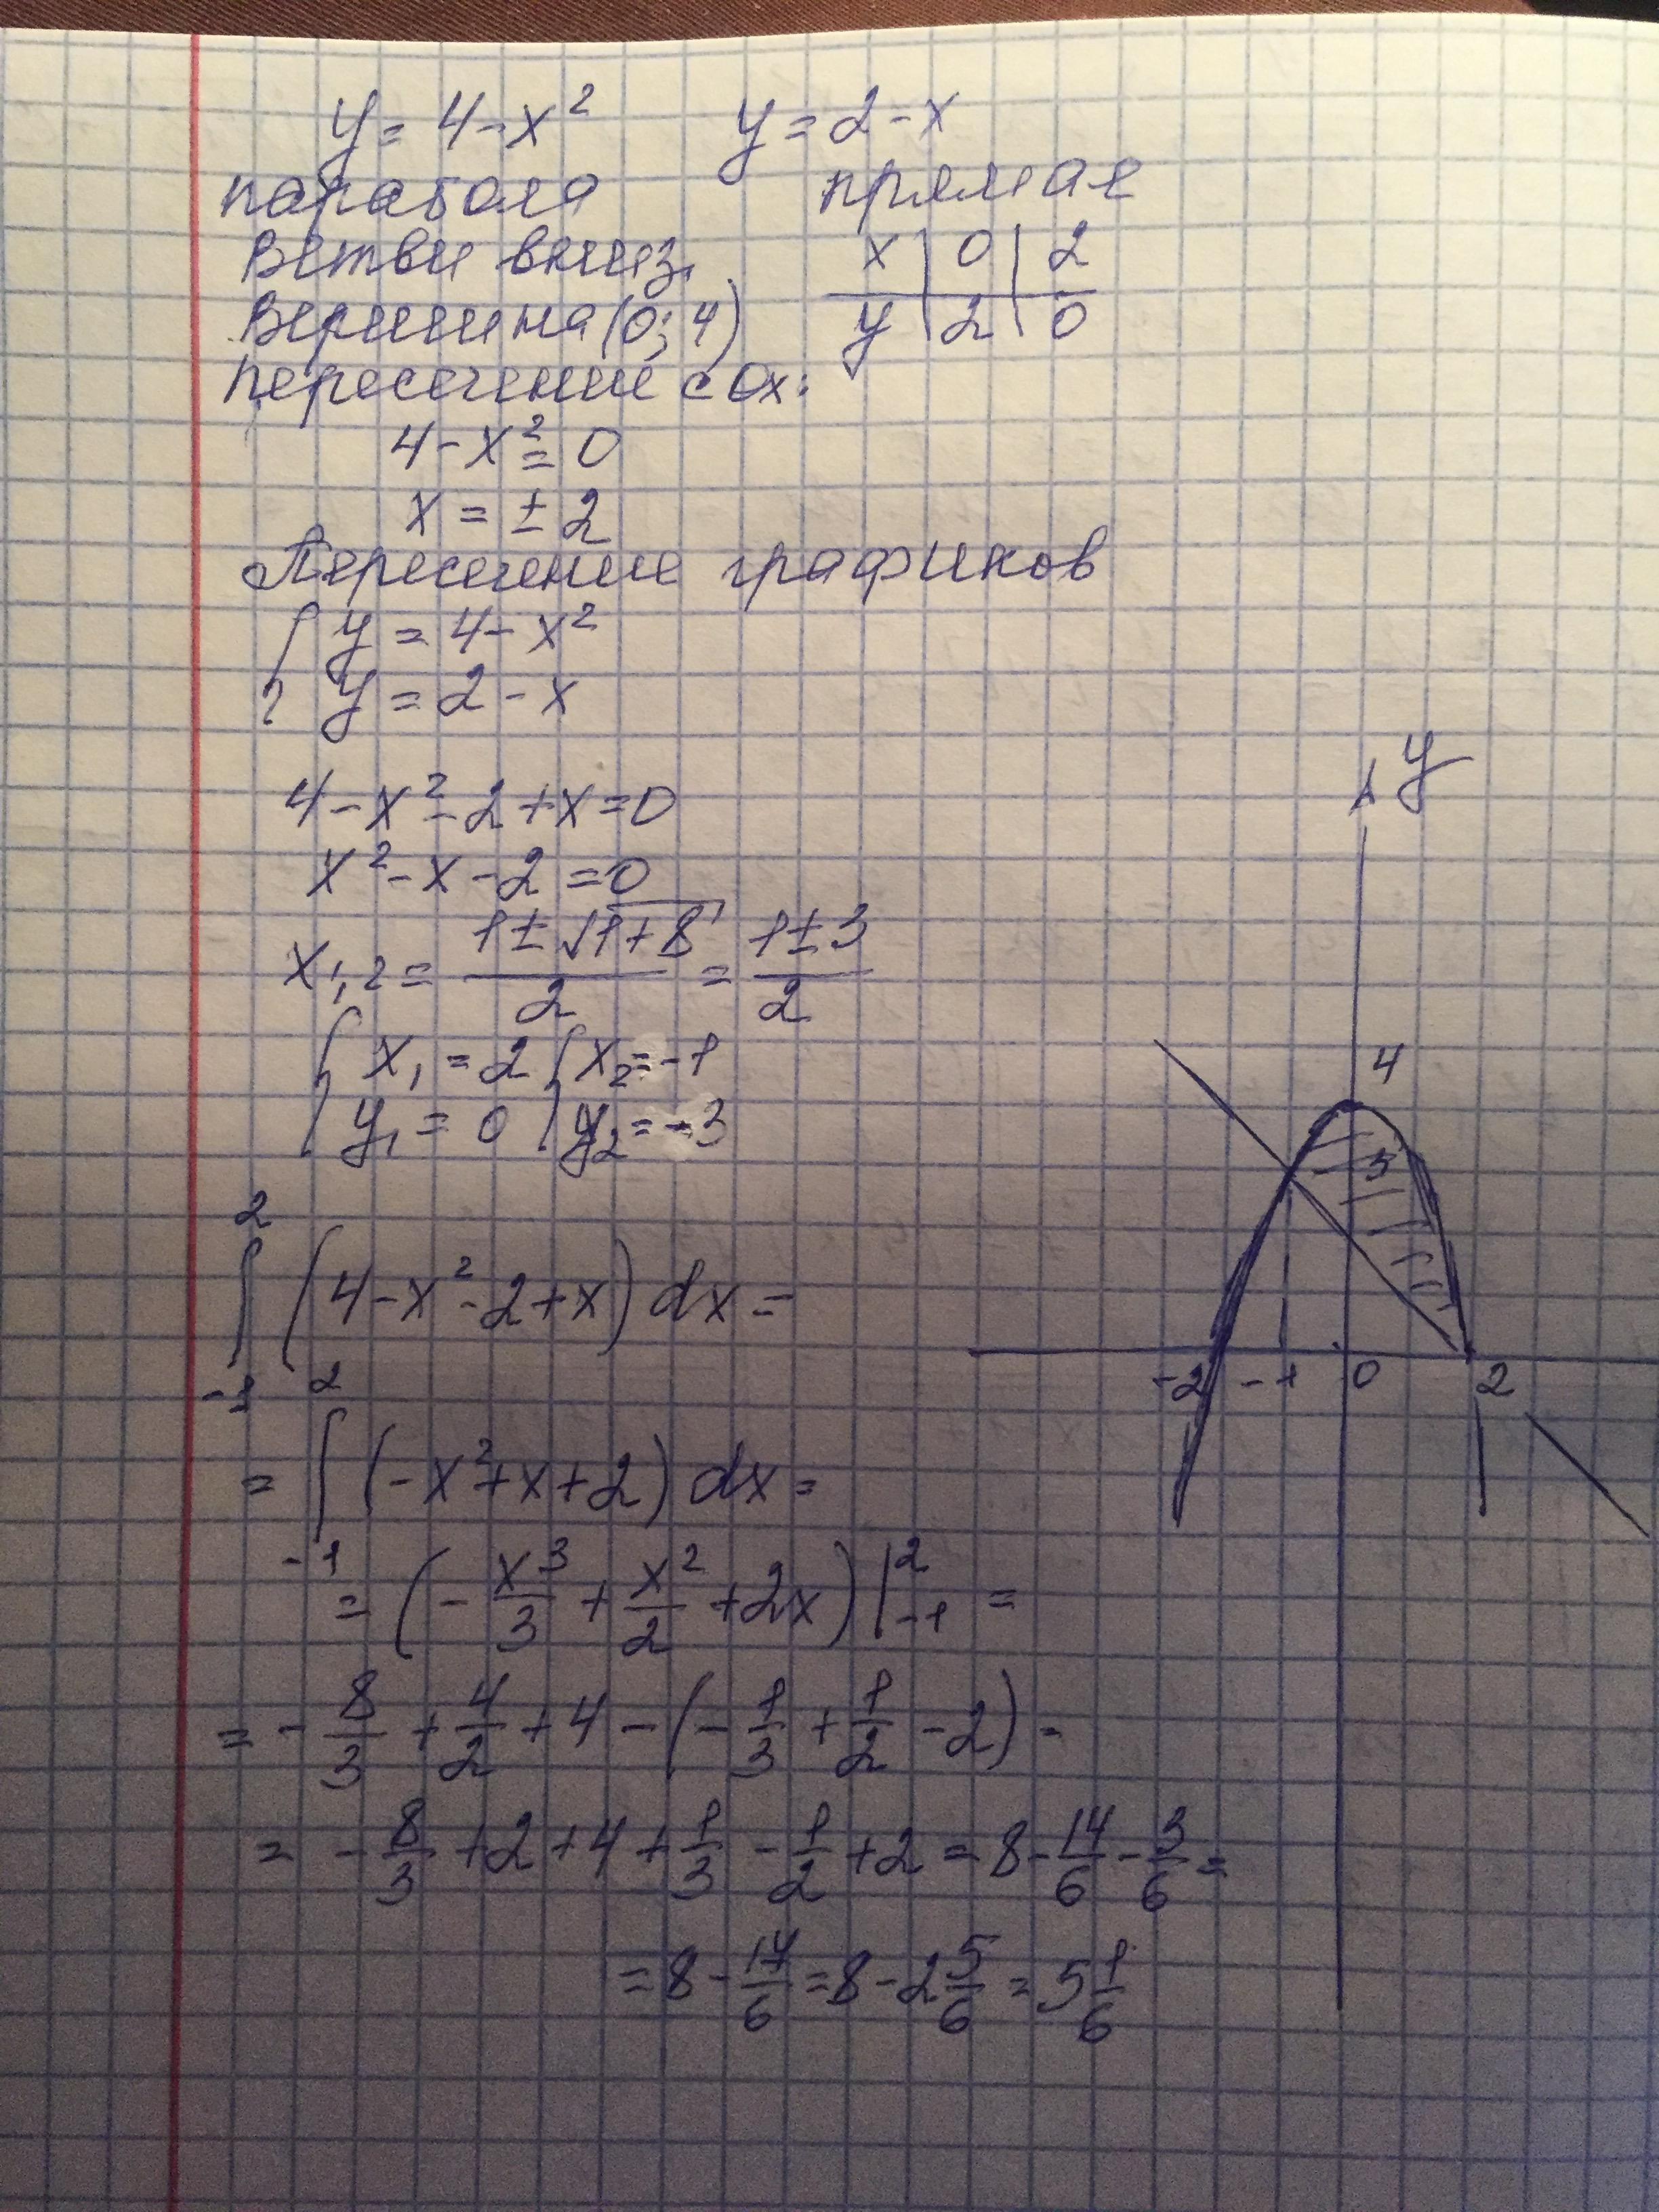 y = 4 - x²    y = 2 - x
парабола    прямая
Ветви вниз.    x | 0 | 2
Вершина (0; 4)    y | 2 | 0
Пересечение с Ox:
4 - x² = 0
x = ± 2
Пересечение графиков
{ y = 4 - x²
{ y = 2 - x
4 - x² - 2 + x = 0
x² - x - 2 = 0
x₁,₂ = (1 ± √(1 + 8))/2 = (1 ± 3)/2
{ x₁ = 2 { x₂ = -1
{ y₁ = 0 { y₂ = -3
∫₋₁² (4 - x² - 2 + x) dx =
= ∫₋₁² (-x² + x + 2) dx =
= (- x³/3 + x²/2 + 2x) |₋₁² =
= - 8/3 + 4/2 + 4 - (- 1/3 + 1/2 - 2) =
= - 8/3 + 2 + 4 + 1/3 - 1/2 + 2 = 8 - 14/6 - 3/6 =
= 8 - 17/6 = 8 - 2 5/6 = 5 1/6
y
4
-2 -1 0 2